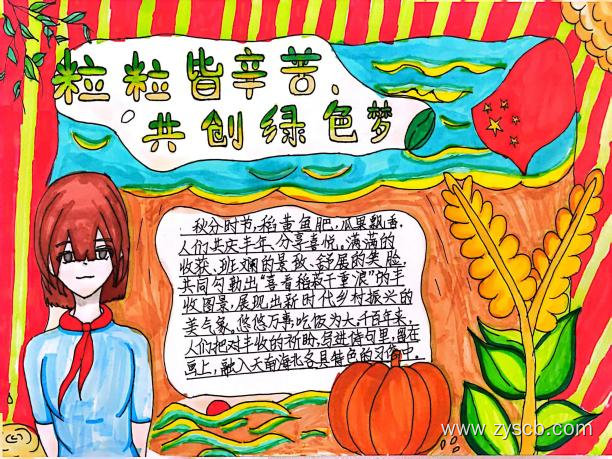 粒粒皆辛苦、
共创绿色梦
秋分时节,稻黄鱼肥,瓜果飘香,
人们共庆丰年、分享喜悦,满满的
收获、斑斓的景致、舒展的笑脸,
共同勾勒出“喜看稻菽千重浪”的丰
收图景,展现出新时代乡村振兴的
美气象。悠悠万事,吃饭为大。千百年来,
人们把对丰收的祈盼,写进诗句里,画在
画上,融入天南海北各具特色的习俗中。
www.zyscb.com